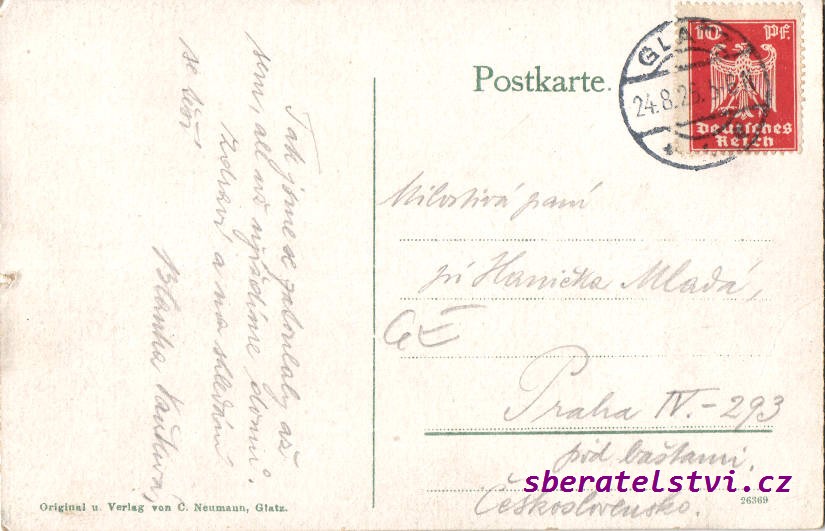 Postkarte.
GLATZ
24.8.25.
10 Pf.
Deutsches
Reich
Tak jsme se zatoulaly až
sem, ale už myslíme domů.
Zdraví a na shledání
se těší
Blanka
Milostivá paní
pí Hanička Mladá,
Praha IV.-293
pod baštami.
Československo.
Original u. Verlag von C. Neumann, Glatz.
26369
sberatelstvi.cz